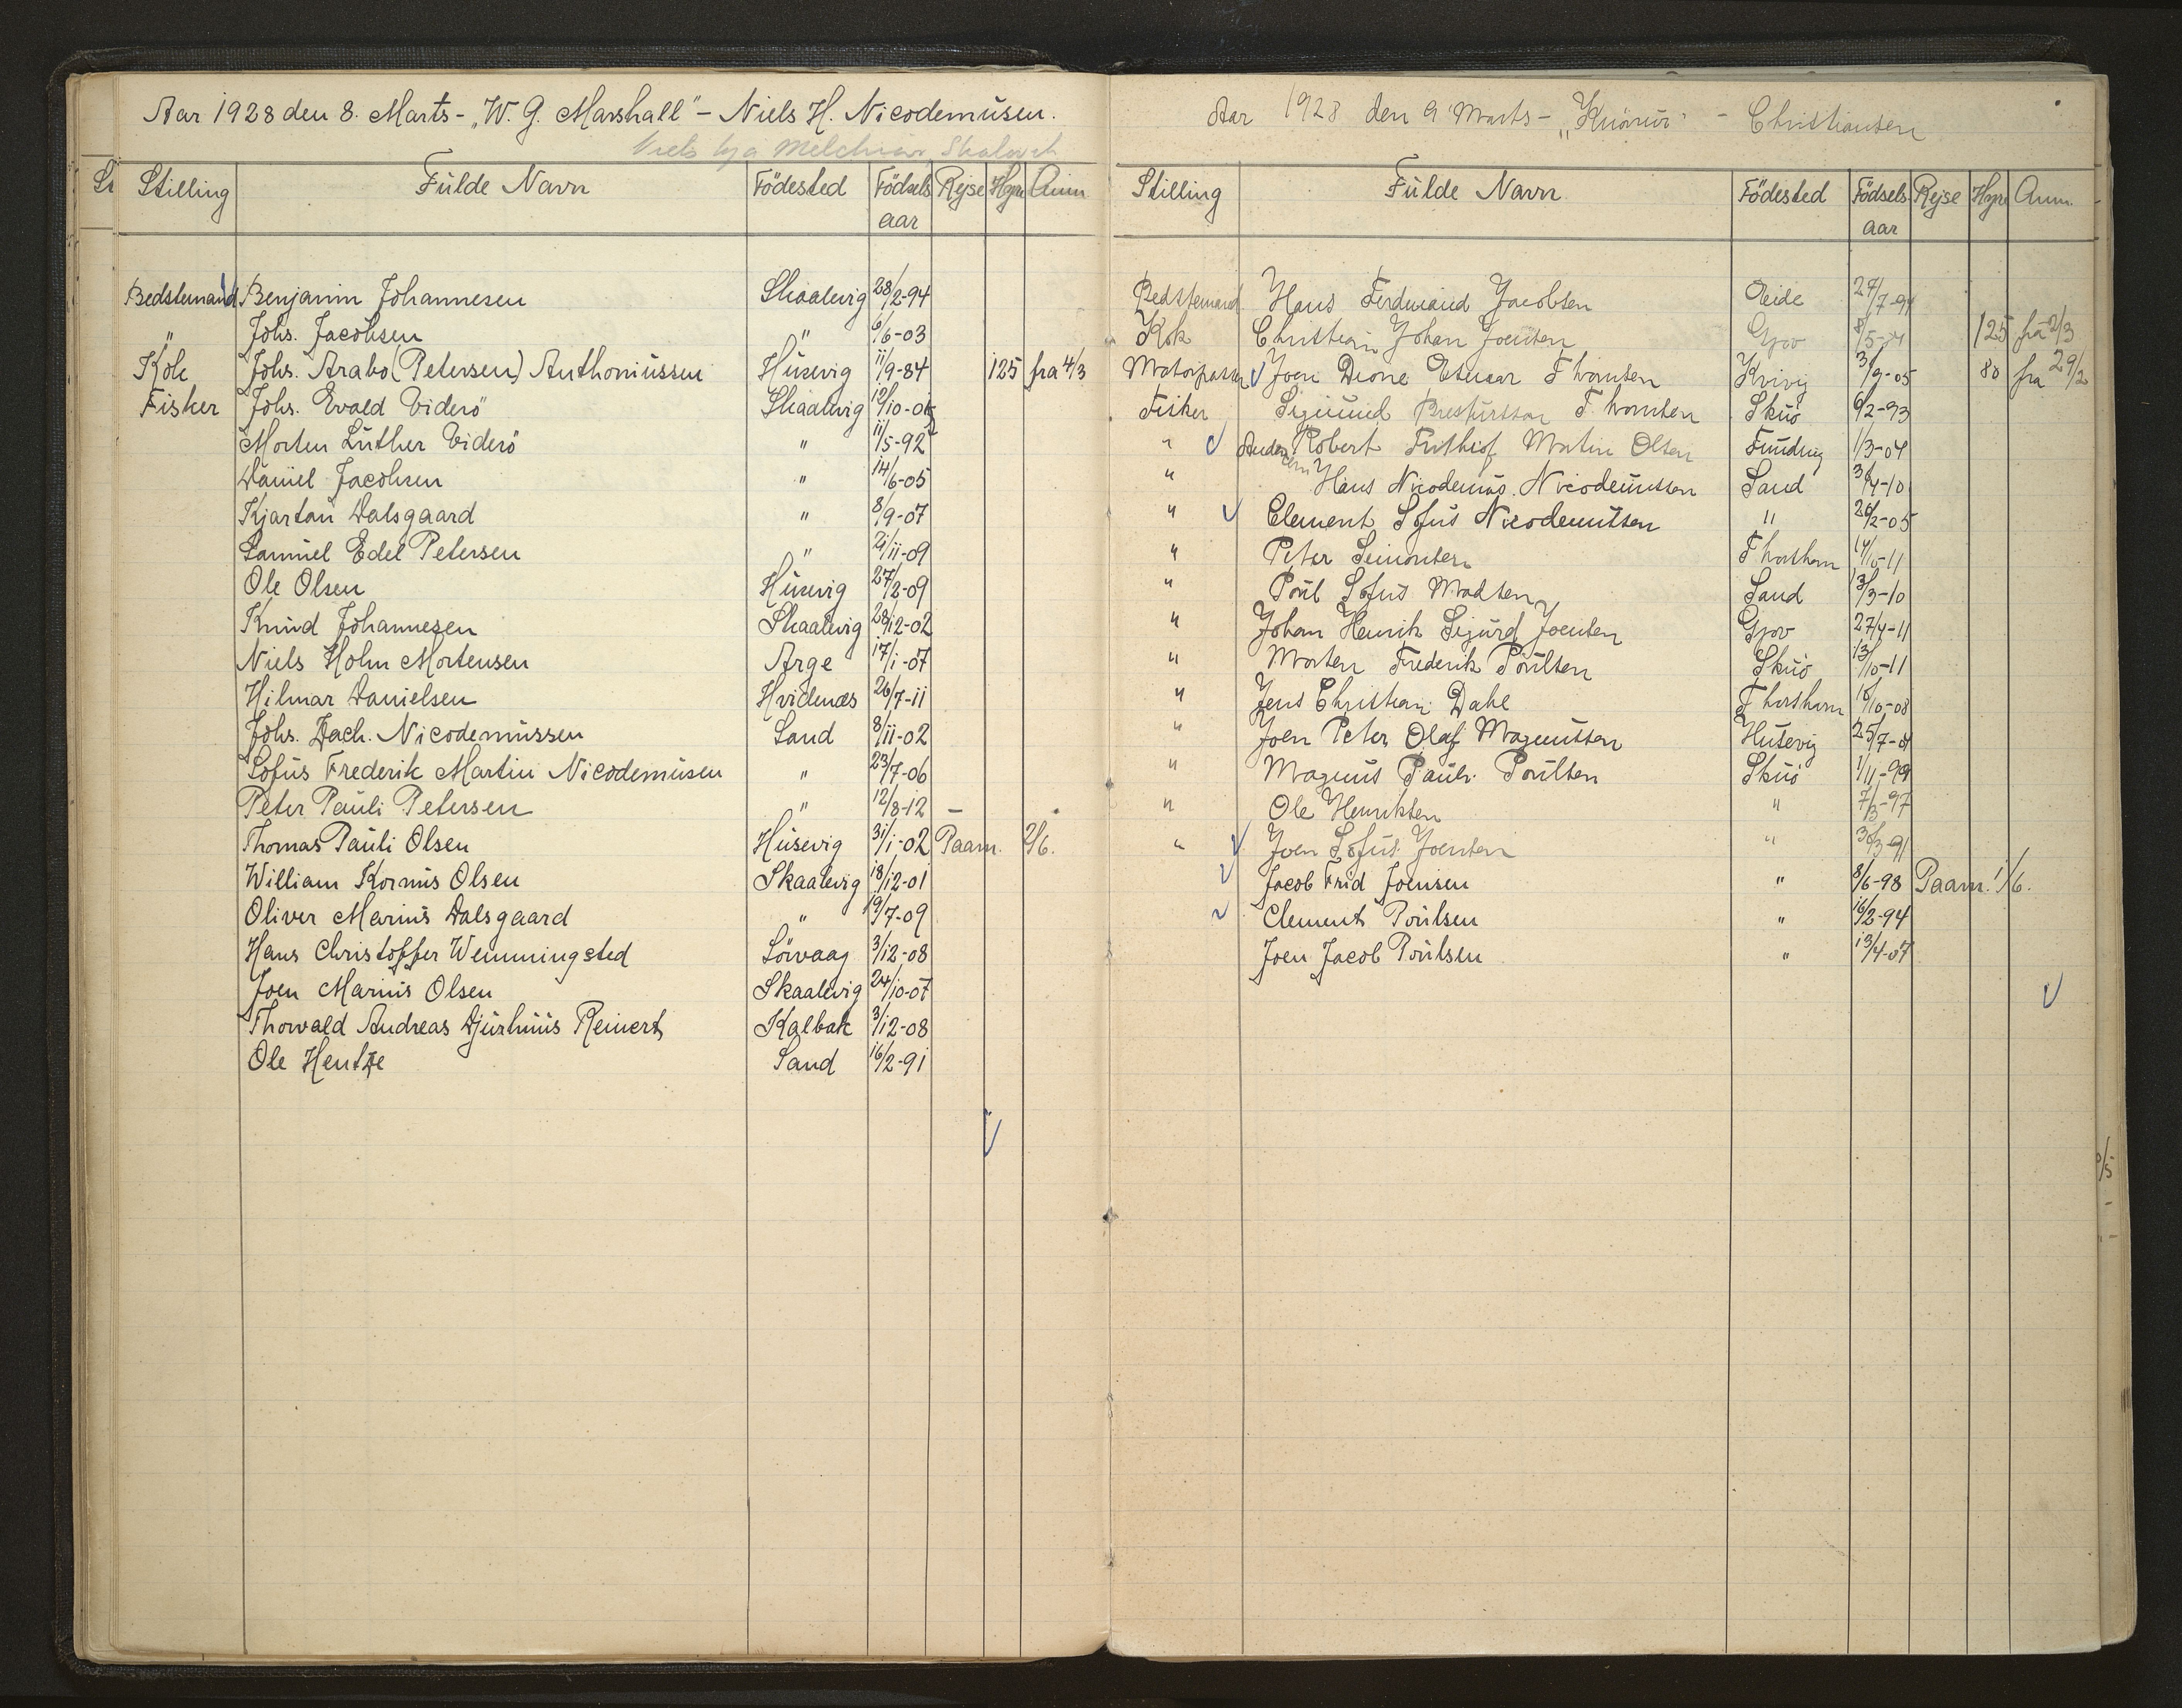 Aar 1928 den 8. Marts - „W. G. Marshall" - Niels H. Nicodemüsen.
Stilling Fülde Navn Födested Födsels aar Rejse Hyre Anm
Bedstemand Benjamin Johannesen Skaalevig 28/2-94
" Johs. Jacobsen " 6/6-03
Kok Johs. Arabo (Petersen) Anthoniüssen Hüsevig 11/9-84 125 fra 4/3
Fisker Johs. Evald Viderö Skaalevig
Morten Lüther Viderö " 11/5-92
Daniel Jacobsen " 14/6-05
Kjartan Dalsgaard " 8/9-07
Samüel Edel Petersen " 21/11-09
Ole Olsen Hüsevig 27/2-09
Knüd Johannesen Skaalevig 28/12-02
Niels Holm Mortensen Arge 17/1-07
Hilmar Danielsen Hvidenæs 26/7-11
Johs. Zach. Nicodemüssen Sand 8/11-02
Sofüs Frederik Martin Nicodemüsen " 23/7-06
Peter Paüli Petersen " 12/8-12 -
Thomas Paüli Olsen Hüsevig 31/1-02 Paam. 2/6.
William Kornüs Olsen Skaalevig 18/12-01
Oliver Mariüs Dalsgaard " 19/7-09
Hans Christoffer Wenningsted Sörvaag 3/12-08
Joen Mariüs Olsen Skaalevig 24/10-07
Thorvald Andreas Djürhüüs Reinert Kalbak 3/12-08
Ole Hentze Sand 16/2-91
Aar 1928 den 9 Marts - „Knörür" - Christiansen
Stilling Fülde Navn Födested Födsels aar Rejse Hyre Anm.
Bedstemand Hans Ferdinand Jacobsen Eide 27/7-94
Kok Christian Johan Joensen Gjov 125 fra 2/3
Motorpasser Joen Dione Thomsen Kvivig 3/9-05 80 fra 29/2
Fisker Sigmünd Thomsen Sküö 6/2-93
" Robert Frithjof Martin Olsen Fünding 1/3-04
" Hans Nicodemüs Nicodemüssen Sand
" Clement Sofüs Nicodemüssen " 26/2-05
" Peter Simonsen Thorshavn 14/10-11
" Poül Sofüs Madsen Sand 13/3-10
" Johan Henrik Sigürd Joensen Gjov 27/4-11
" Morten Frederik Poülsen Sküö 13/10-11
" Jens Christian Dahl Thorshavn 16/10-08
" Joen Peter Olaf Magnüssen Hüsevig 25/7-01
" Magnüs Paüli Poülsen Sküö 1/11-99
" Ole Henriksen " 7/3-97
" Joen Sofüs Joensen " 30/3-91
Jacob Frid Joensen " 8/6-98 Paam. 1/6.
Clement Poülsen " 16/2-94
Joen Jacob Poülsen " 13/4-07